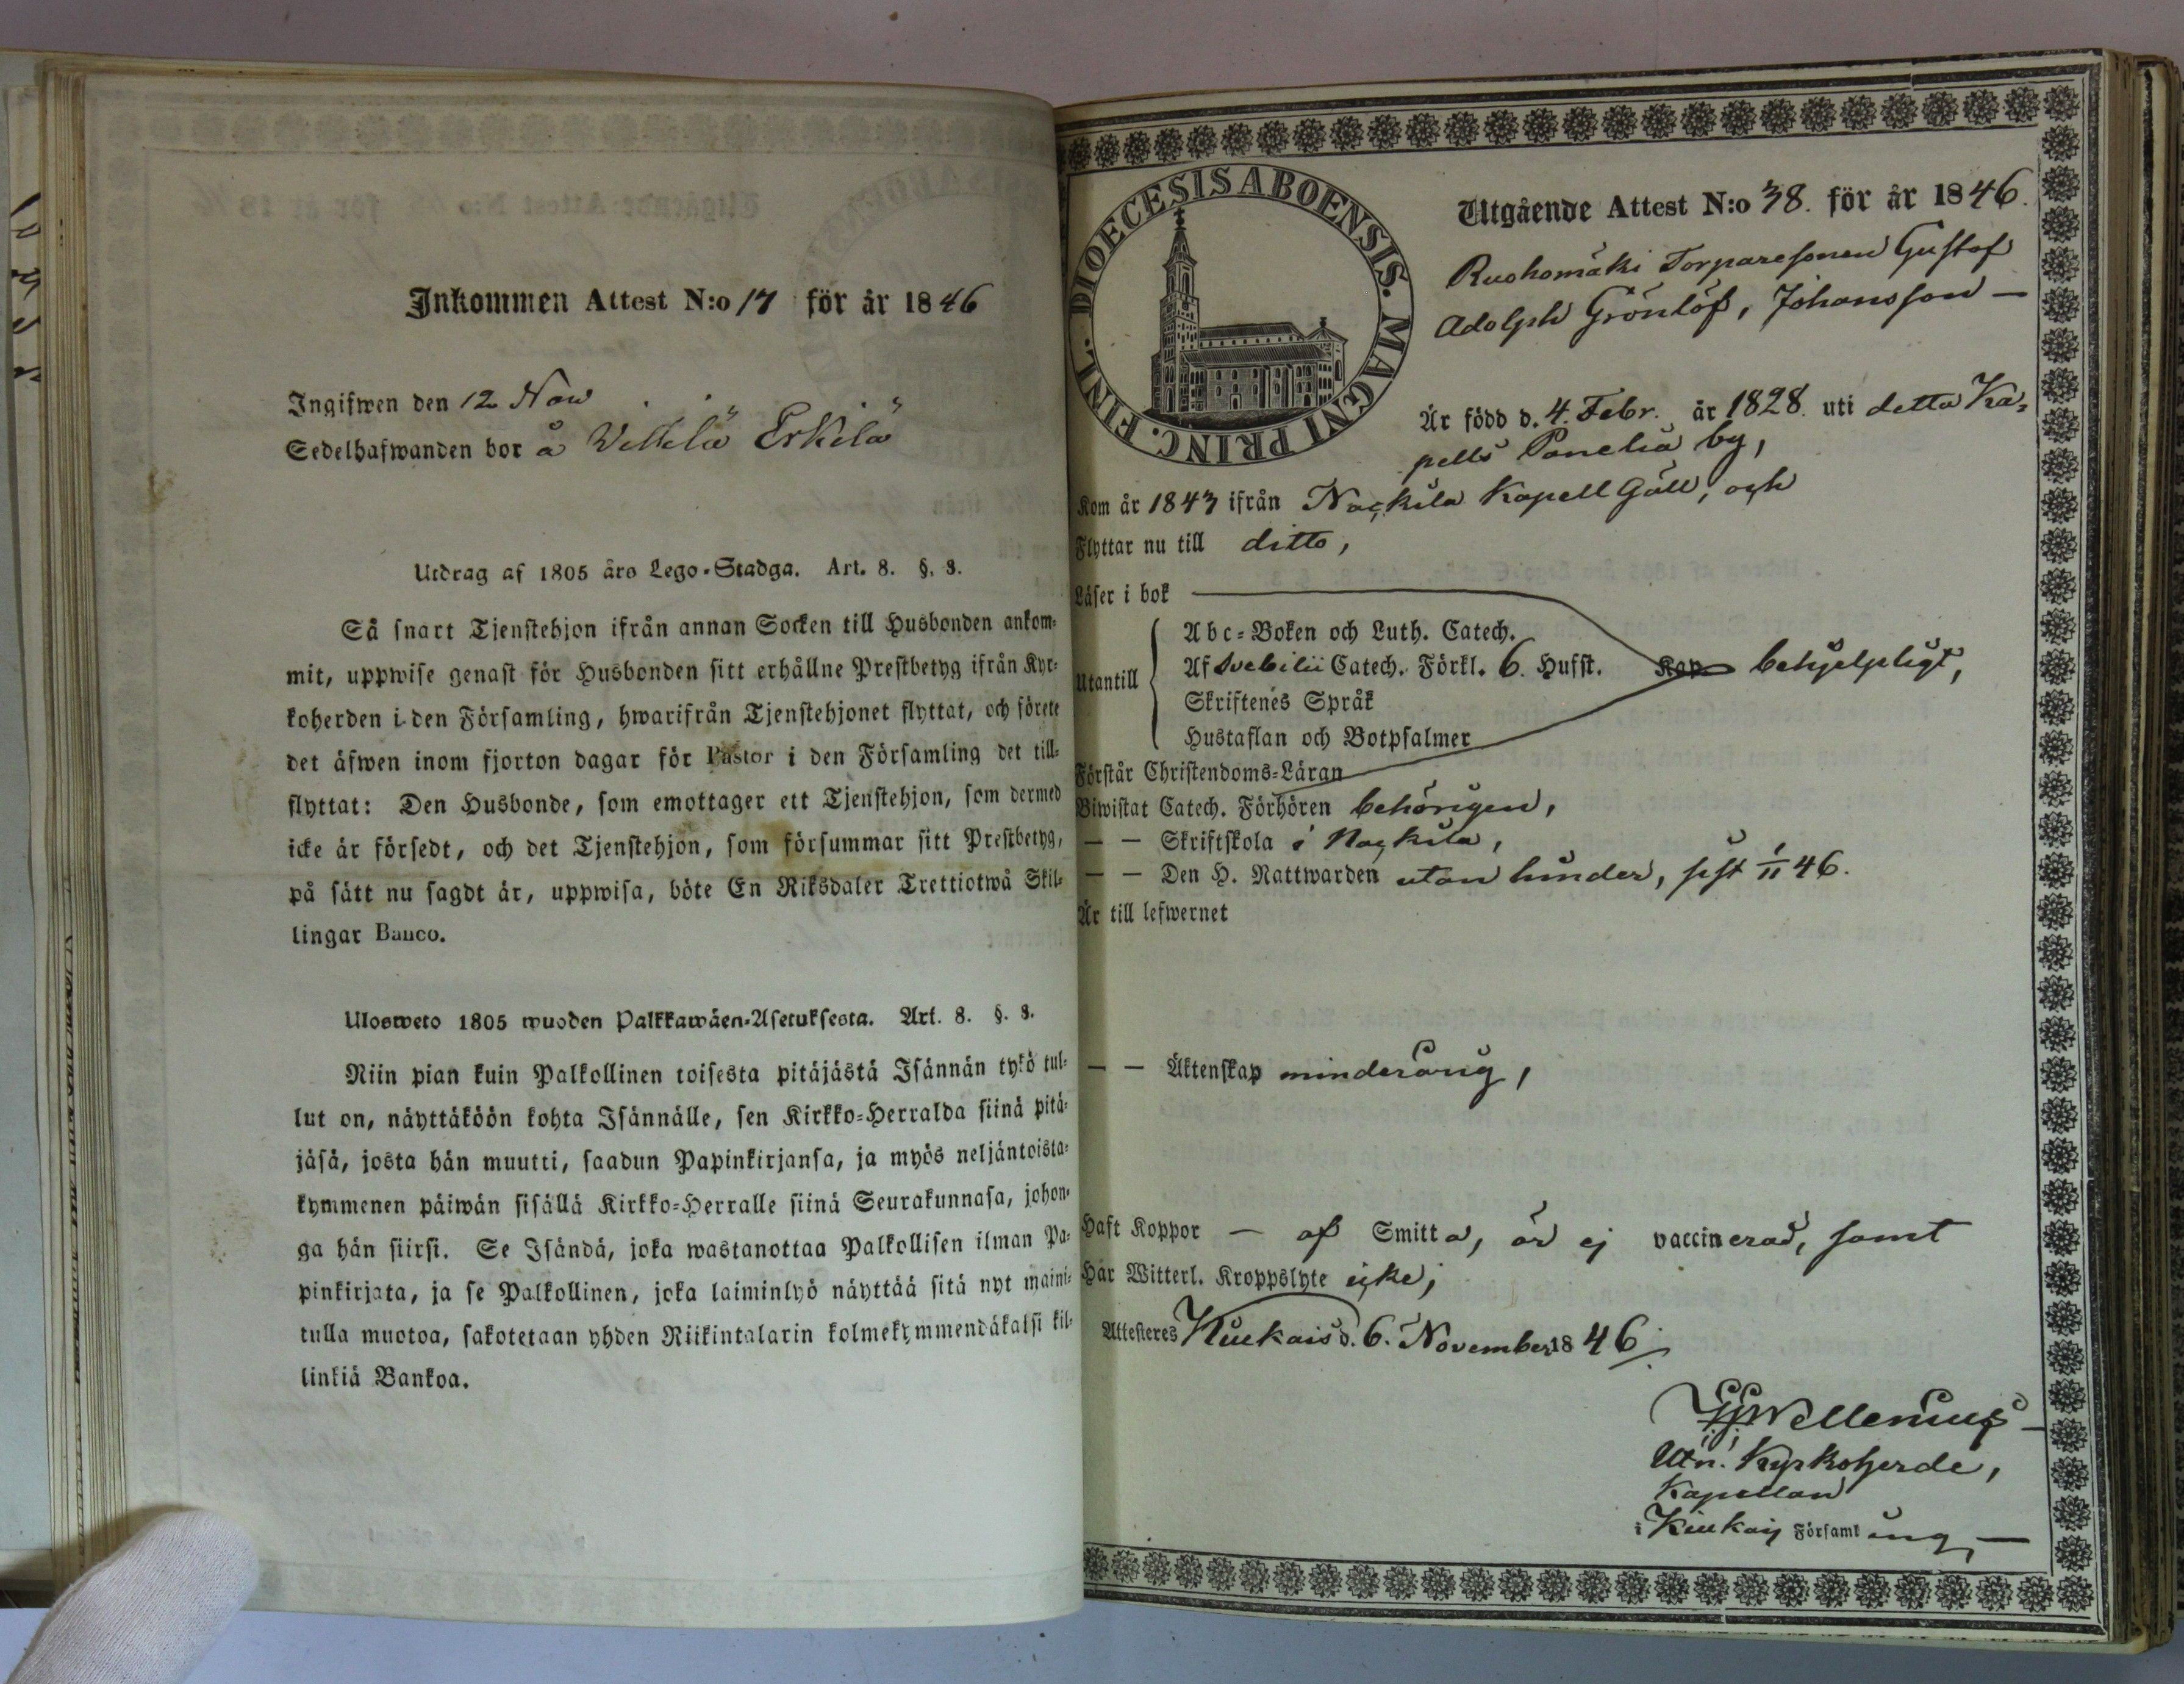 Inkommen Attest N:o 17 för år 1846
Ingifwen den 12 Nov
Sedelhafwanden bor å Villilä Erkilä
Utdrag af 1805 års Lego-Stadga. Art. 8. §. 3.
Så snart Tjenstehjon ifrån annan Socken till Husbonden ankom-
mit, uppwise genast för Husbonden sitt erhållne Prestbetyg ifrån Kyr-
koherden i den Församling, hwarifrån Tjenstehjonet flyttat, och förete
det äfwen inom fjorton dagar för Pastor i den Församling det till-
flyttat: Den Husbonde, som emottager ett Tjenstehjon, som dermed
icke är försedt, och det Tjenstehjon, som försummar sitt Prestbetyg,
på sätt nu sagdt är, uppwisa, böte En Riksdaler Trettiotwå Skil-
lingar Banco.
Ulosweto 1805 wuoden Palkkawäen-Asetuksesta. Art. 8. §. 3.
Niin pian kuin Palkollinen toisesta pitäjästä Isännän tykö tul-
lut on, näyttäköön kohta Isännälle, sen Kirkko-Herralda siinä pitä-
jäsä, josta hän muutti, saadun Papinkirjansa, ja myös neljäntoista-
kymmenen päiwän sisällä Kirkko-Herralle siinä Seurakunnasa, johon-
ga hän siirsi. Se Isändä, joka wastanottaa Palkollisen ilman Pa-
pinkirjata, ja se Palkollinen, joka laiminlyö näyttää sitä nyt maini-
tulla muotoa, sakotetaan yhden Riikintalarin kolmekymmendäkaksi kil-
linkiä Bankoa.
DIOECESIS ABOENSIS. MAGNI PRINC. FINL.
Utgående Attest N:o 38. för år 1846.
Ruohomäki Torparesonen Gustaf
Adolph Grönlöf, Johansson —
Är född d. 4. Febr. år 1828. uti detta Ka-
pells Panelia by,
Kom år 1843 ifrån Nackila Kapell Gäll, och
Flyttar nu till ditto,
Läser i bok
Utantill
Abc-Boken och Luth. Catech.
Af Svebilii Catech. Förkl. 6. Hufst. Kap behjelpligt,
Skriftenes Språk
Hustaflan och Botpsalmer
Förstår Christendoms-Läran
Biwistat Catech. Förhören behörigen,
— — Skriftskola i Nackila,
— — Den H. Nattwarden utan hinder, sist 1/11 46.
Är till lefwernet
— — Äktenskap minderårig,
Haft Koppor — af Smitta, är ej vaccinerad, samt
Har Witterl. Kroppslyte icke;
Attesteres Kiukais d. 6. November 1846.
Wellenius
Utn. Kyrkoherde,
Kapellan
i Kiukais Församling, —